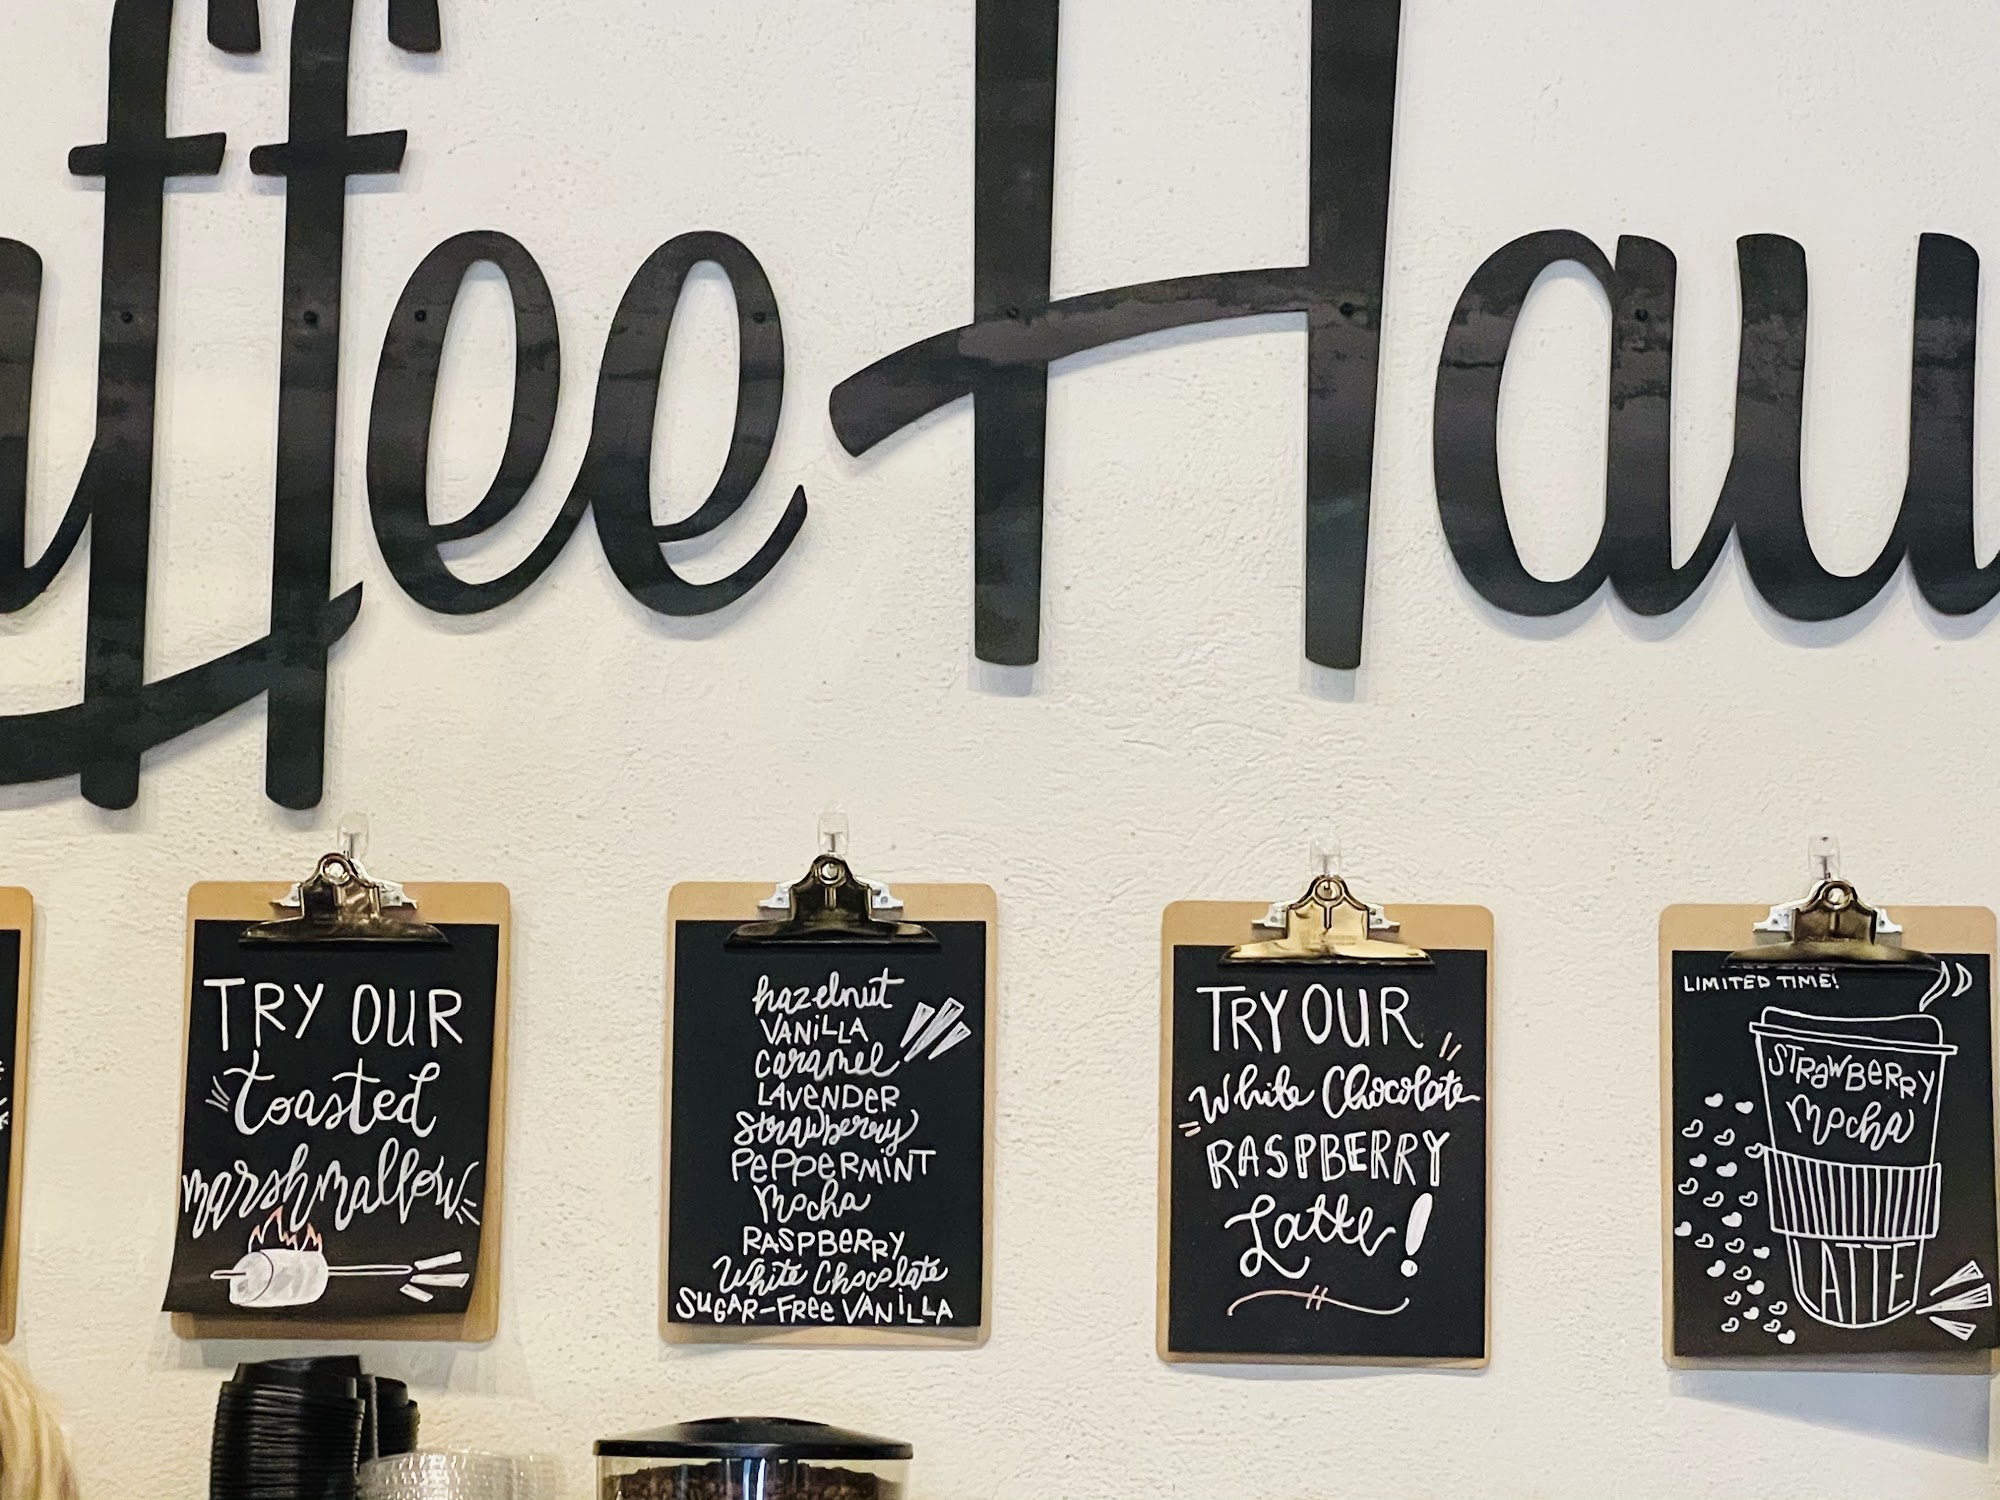 ffee Hau
TRY OUR
toasted
marshmallow
hazelnut
VANILLA
caramel
LAVENDER
Strawberry
PEPPERMINT
Mocha
RASPBERRY
White Chocolate
SUGAR-FREE VANILLA
TRY OUR
White Chocolate
RASPBERRY
Latte!
LIMITED TIME!
STRAWBERRY
Mocha
LATTE